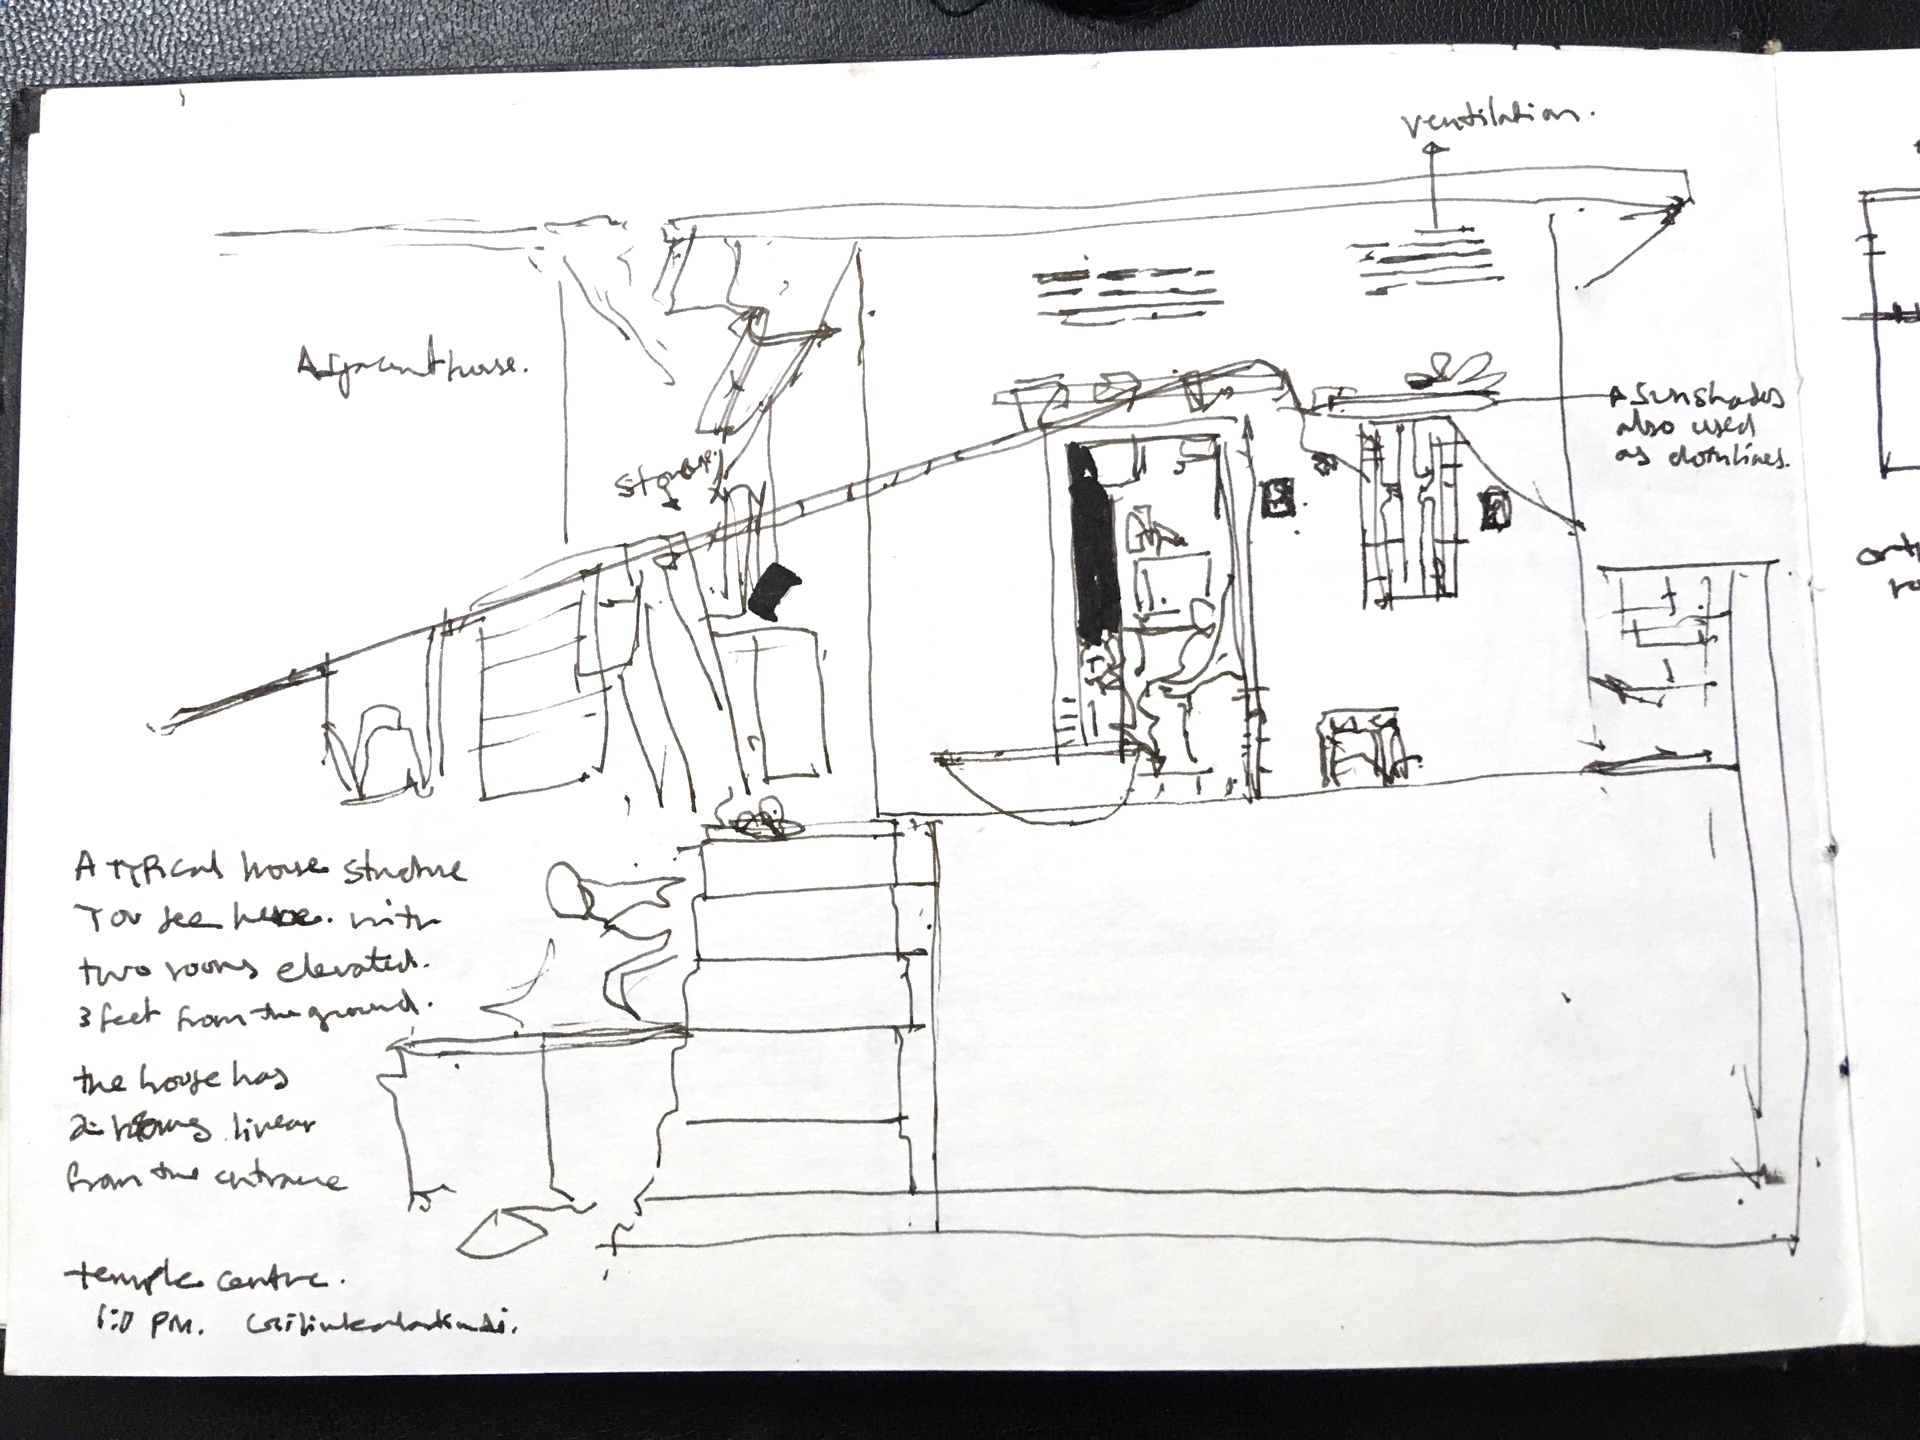 ventilation.
Adjacent house.
Sunshades
also used
as clothlines.
storage
A typical house structure
You see here. with
two rooms elevated.
3 feet from the ground.
the house has
2- rooms linear
from the entrance
temple centre.
PM.